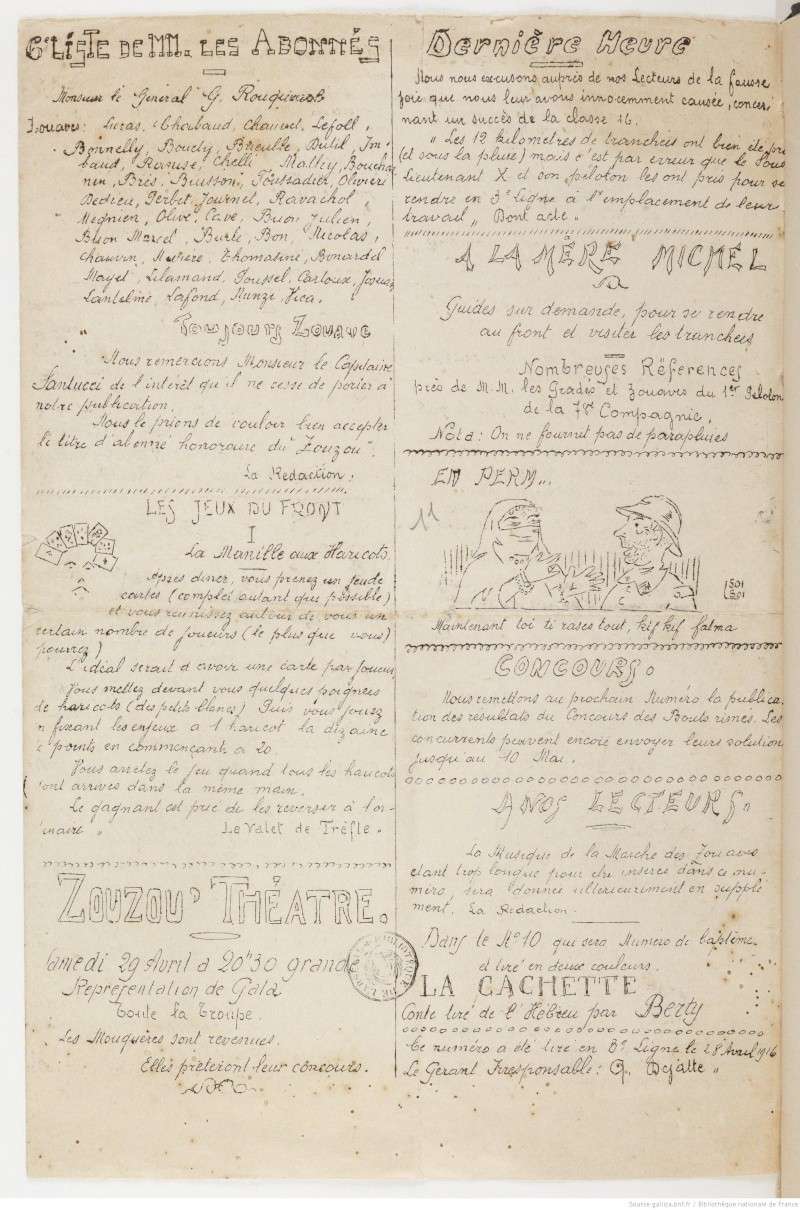 6e Liste de MM. les Abonnés
Monsieur le Général G.
Zouaves: Luras, Chaibaud, Chauvet, Lefoll,
Bonnelly, Bouely, Breuille, Dutil, Im-
baud, Ranise, Chelli, Matley, Boucha-
nin, Brès, Buisson, Toussadier, Olivieri
Dedieu, Perbet, Journel, Ravachol
Megnien, Olive, Cave, Buon Julien,
Buon Marcel, Burle, Bon, Nicolas,
Chauvin, Thomasine, Binardel
Mayet, Lilamand, Roussel, Cartoux,
Lantelme, Lafond, Kunze, Vica.
" Toujours Zouave
Nous remercions Monsieur le Capitaine
Santucci de l'intérêt qu'il ne cesse de porter à
notre publication.
Nous le prions de vouloir bien accepter
le titre d'abonné honoraire du "Zouzou".
La Rédaction.
LES JEUX DU FRONT
I
La Manille aux Haricots.
Après diner, vous prenez un jeu de
cartes (complet autant que possible)
et vous réunissez autour de vous un
certain nombre de joueurs (le plus que vous
pourrez)
L'idéal serait d'avoir une carte par joueur
Vous mettez devant vous quelques poignées
de haricots (des petits blancs) Puis vous jouez
n fixant les enjeux à 1 haricot la dizaine
e points en commençant à 20.
Vous arrêtez le jeu quand tous les haricots
sont arrivés dans la même main.
Le gagnant est prié de les reverser à l'or-
inaire " Le Valet de Trèfle.
ZOUZOU' THÉATRE.
Samedi 29 Avril à 20h30 grande
Représentation de Gala
Toute la Troupe.
Les Mouquères sont revenues.
Elles prêteront leur concours.
Dernière Heure
Nous nous excusons auprès de nos Lecteurs de la fausse
joie que nous leur avons innocemment causée, concer-
nant un succès de la classe 16.
" Les 12 kilomètres de tranchées ont bien été pris
(et sous la pluie) mais c'est par erreur que le Sous
Lieutenant X et son peloton les ont pris pour se
rendre en 3e Ligne à l'emplacement de leur
travail " Dont acte."
A LA MÈRE MICHEL
Guides sur demande, pour se rendre
au front et visiter les tranchées
Nombreuses Références
près de M.M. les Gradés et Zouaves du 1er Peloton
de la 78e Compagnie.
Nota: On ne fournit pas de parapluies
EN PERM...
11
SOI
SOI
Maintenant toi ti rases tout, kif kif fatma
CONCOURS.
Nous remettons au prochain Numéro la publica-
tion des résultats du Concours des Bouts rimés. Les
concurrents peuvent encore envoyer leurs solution
jusqu'au 10 Mai.
A NOS LECTEURS."
La Musique de la Marche des Zouaves
étant trop longue pour être insérée dans ce nu-
méro, sera donnée ultérieurement en supplé-
ment. La Rédaction.
Dans le No 10 qui sera Numéro de baptême
et tiré en deux couleurs.
LA CACHETTE
Conte tiré de l'Hébreu par Berty
Ce numéro a été tiré en 3e Ligne le 28 Avril 1916
Le Gérant Irresponsable: G. Dejatte "
Source gallica.bnf.fr / Bibliothèque nationale de France